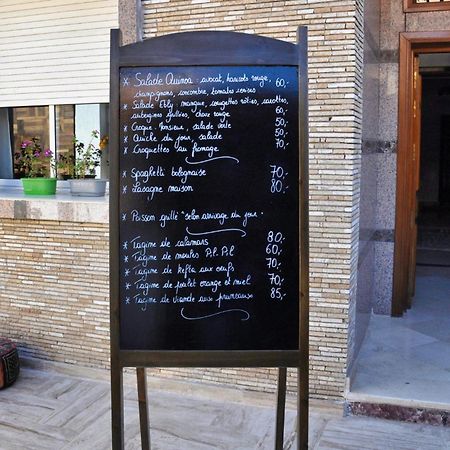 * Salade Quinoa : avocat, haricots rouge, 60.-
champignons, concombre, tomates cerises
* Salade Ebly : mangue, courgettes rôties, carottes, 60.-
aubergines grillées, choux rouge
* Croque-Monsieur, salade verte 50.-
* Quiche du jour, salade 50.-
* Croquettes au fromage 70.-
* Spaghetti bolognaise 70.-
* Lasagne maison 80.-
* Poisson grillé "selon arrivage du jour.
* Tagine de calamars 80.-
* Tagine de moules Pil Pil 60.-
* Tagine de kefta aux oeufs 70.-
* Tagine de poulet orange et miel 70.-
* Tagine de viande aux pruneaux 85.-